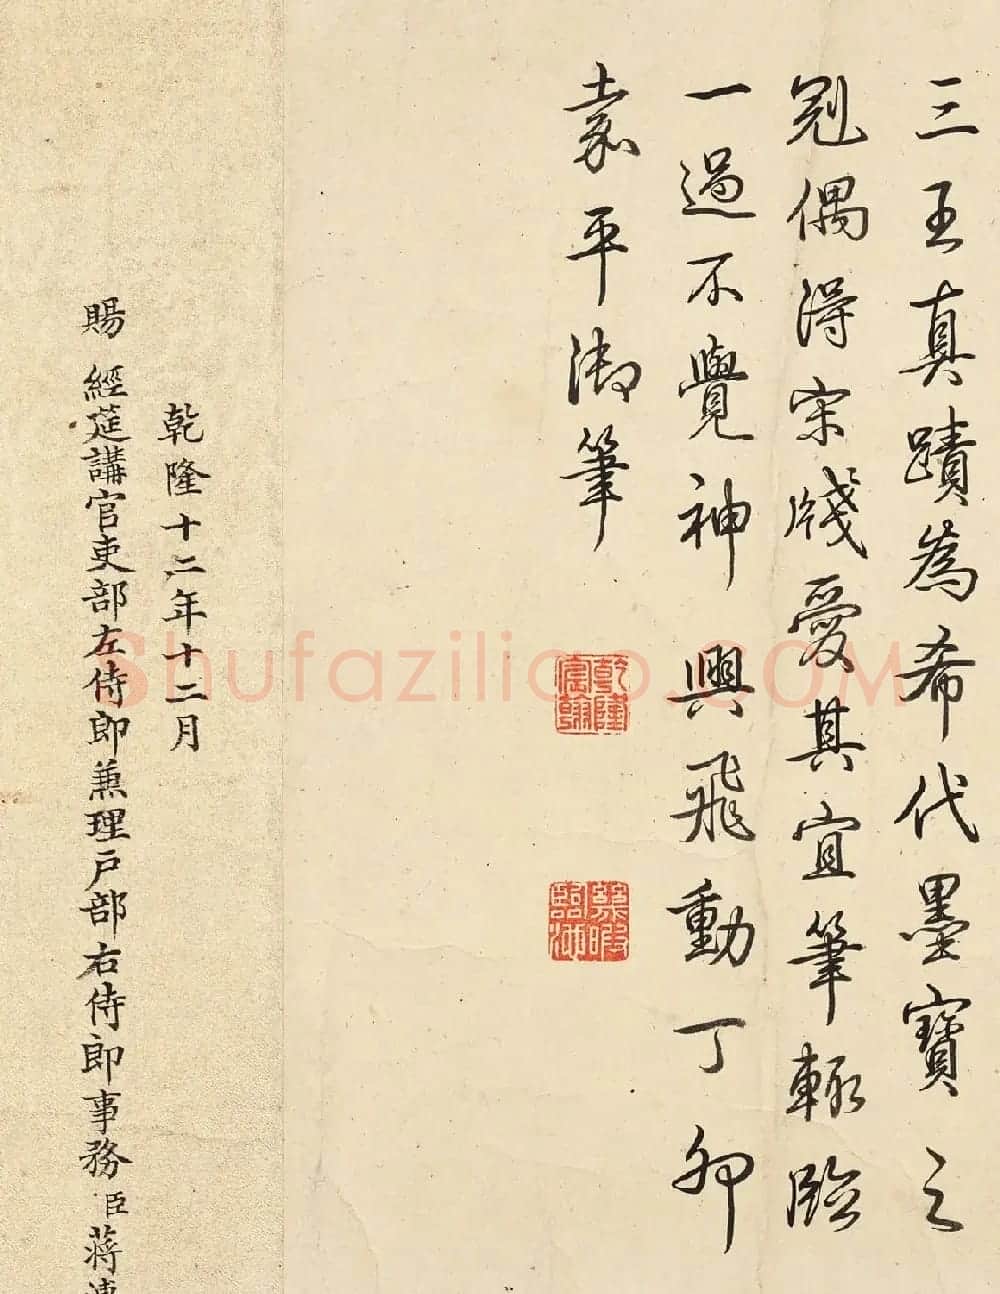 三王真蹟為希代墨寶之
冠偶得宋牋愛其宜筆輙臨
一過不覺神興飛動丁卯
嘉平御筆
乾隆宸翰
乾隆十二年十二月
賜 經筵講官吏部左侍郎兼理戶部右侍郎事務臣蔣溥
Shufaziliao.COM